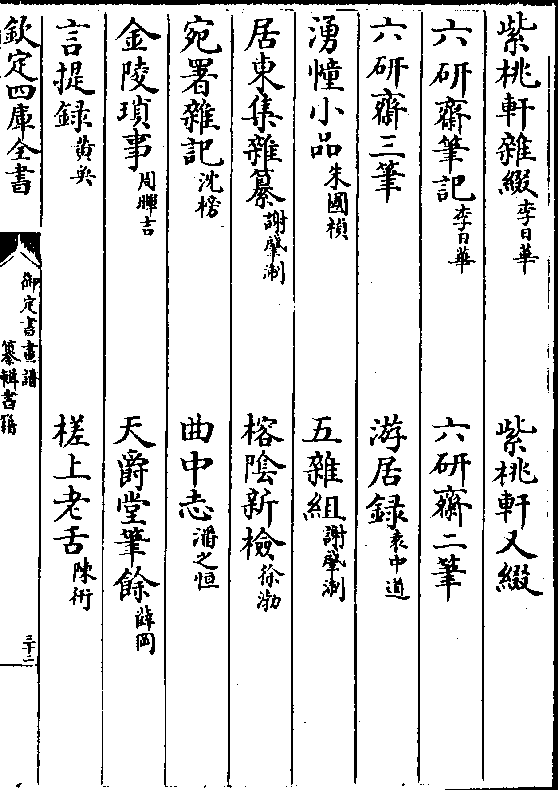 紫桃軒雜綴李日華　紫桃軒又綴
六研齋筆記李日華　六研齋二筆
六研齋三筆　游居録袁中道
湧幢小品朱國禎　五雜組謝肇淛
居東集雜纂謝肇淛　榕陰新檢徐𤊹
宛署雜記沈榜　曲中志潘之恒
金陵瑣事周暉吉　天爵堂筆餘薛岡
言提録黄奂　槎上老舌陳衎
欽定四庫全書　御定書畫譜　纂輯書籍　三十二